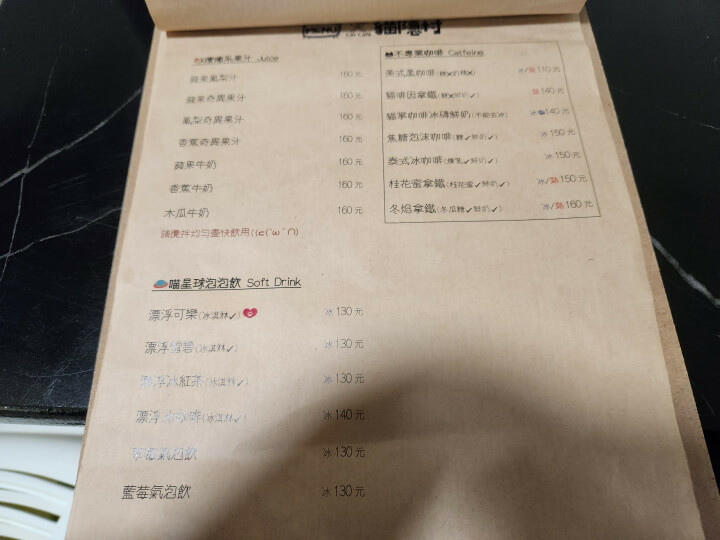 MENU 貓隱村
果汁 Juice
蘋果鳳梨汁 160 元
蘋果奇異果汁 160 元
鳳梨奇異果汁 160 元
香蕉奇異果汁 160 元
蘋果牛奶 160 元
香蕉牛奶 160 元
木瓜牛奶 160 元
請攪拌均勻盡快飲用
不專業咖啡 Caffeine
美式黑咖啡(糖✕奶精✕) 冰/熱110 元
貓啡因拿鐵(糖✕鮮奶✓) 熱140 元
貓掌咖啡冰磚鮮奶(不能去冰) 冰140 元
焦糖泡沫咖啡(糖✓鮮奶✓) 冰150 元
泰式冰咖啡(煉乳✓鮮奶✓) 冰150 元
桂花蜜拿鐵(桂花蜜✓鮮奶✓) 冰/熱150 元
冬焰拿鐵(冬瓜糖✓鮮奶✓) 冰/熱160 元
喵星球泡泡飲 Soft Drink
漂浮可樂(冰淇淋✓) 冰130 元
漂浮雪碧(冰淇淋✓) 冰130 元
漂浮冰紅茶(冰淇淋✓) 冰130 元
漂浮冰咖啡(冰淇淋✓) 冰140 元
草莓氣泡飲 冰130 元
藍莓氣泡飲 冰130 元